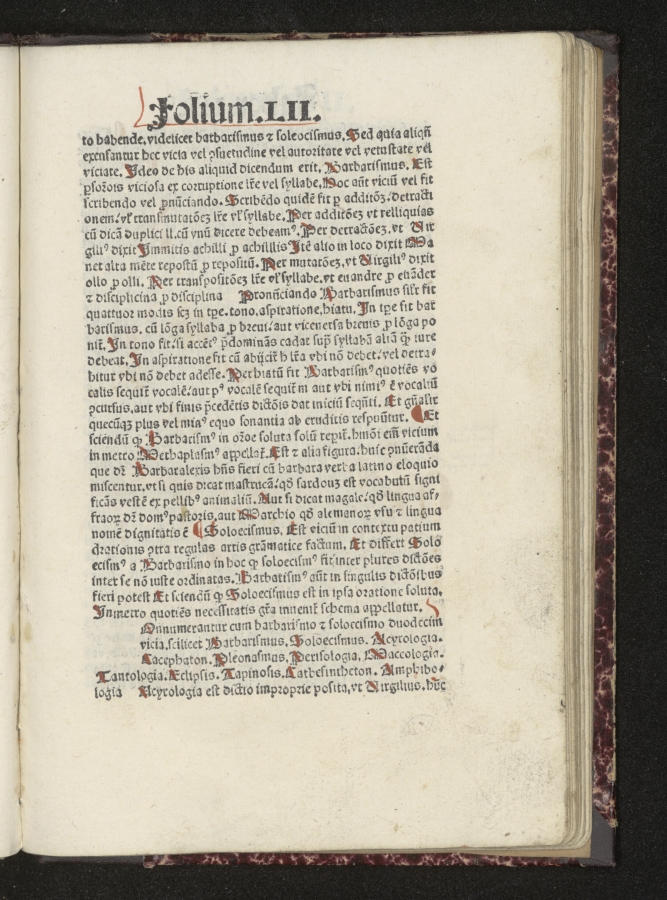 Folium.LII.
to habende.videlicet barbarismus ⁊ soloecismus. Sed quia aliqñ
excusantur hec vicia vel ꝯsuetudine vel autoritate vel vetustate vel
viciate. Ideo de his aliquid dicendum erit. Barbarismus. Est
viciosa ex corruptione lr̃e vel syllabe. Hoc aũt viciũ vel fit
scribendo vel ꝓnũciando. Scribẽdo quidẽ fit ꝑ additõeꝫ. detracti
onem. vl̃ transmutatõeꝫ lr̃e vl̃ syllabe. Per additõeꝫ vt relliquias
cũ dicã duplici ll.cũ vnũ dicere debeamꝰ. Per detractõeꝫ. vt Vir
giliꝰ dixit Immitis achilli ꝓ achillis Itẽ alio in loco dixit Ma
net alta mẽte repostũ ꝓ repositũ. Per mutatõeꝫ. vt Virgiliꝰ dixit
ollo ꝓ olli. Per transpositõeꝫ lr̃e vl̃ syllabe. vt euandre ꝓ euãder
⁊ disciplicina ꝓ disciplina Pronũciando Barbarismus sil̃r fit
quattuor modis scꝫ in tꝑe. tono. aspiratione. hiatu. In tꝑe fit bar
barismus. cũ lõga syllaba ꝓ breui. aut viceuersa breuis ꝓ lõga po
nit̃. In tono fit. si accẽtꝰ p̃dominãs cadat suꝑ syllabã aliã ꝙ̃ iure
debeat. In aspiratione fit cũ abijcit̃ h lr̃a vbi nõ debet. vel detra⸗
hitur vbi nõ debet adesse. Per hiatũ fit Barbarismꝰ quotiẽs vo
calis sequit̃ vocalẽ. aut pꝰ vocalẽ sequit̃ m aut vbi nimiꝰ ẽ vocaliũ
ꝯcursus. aut vbi finis p̃cedẽtis dictõis dat iniciũ seq̃nti. Et gñalit̃
quecũqꝫ plus vel minꝰ equo sonantia ab eruditis respuũtur. Et
sciendũ ꝙ Barbarismꝰ in soluta solũ reꝑit̃. em̃ vicium
in metro Methaplasmꝰ appellat̃. Est ⁊ alia figura. huic ꝓnũcrãda
que dr̃ Barbaralexis hñs fieri cũ barbara verba latino eloquio
miscentur. vt si quis dicat mastrucã. qd̃ sardoꝝ est vocabulũ signi
ficãs vestẽ ex pellibꝰ animaliũ. Aut si dicat magale. qd̃ lingua af⸗
fraoꝝ dr̃ domꝰ pastoris. aut Marchio qd̃ alemanoꝝ vsu ⁊ lingua
nomẽ dignitatis ẽ Soloecismus. Est viciũ in contextu patium
õrationis ꝯtra regulas artis grãmatice factum. Et differt Solo
ecismꝰ a Barbarismo in hoc ꝙ soloecismꝰ fit inter plures dictões
inter se nõ iuste ordinatas. Barbatismꝰ aũt in singulis dictõibus
fieri potest Et sciendũ ꝙ Soloecismus est in ipsa oratione soluta.
In metro quotiẽs necessitatis gr̃a inuenit̃ schema appellatur.
Annumerantur cum barbarismo ⁊ soloecismo duodecim
vicia. scilicet Barbarismus. Soloecismus. Acyrologia.
Cacephaton. Pleonasmus. Perisologia. Macrologia.
Tantologia. Eclipsis. Tapinosis. Cathesintheton. Amphibo⸗
logia Acyrologia est dictio improprie posita. vt Virgilius. hũc